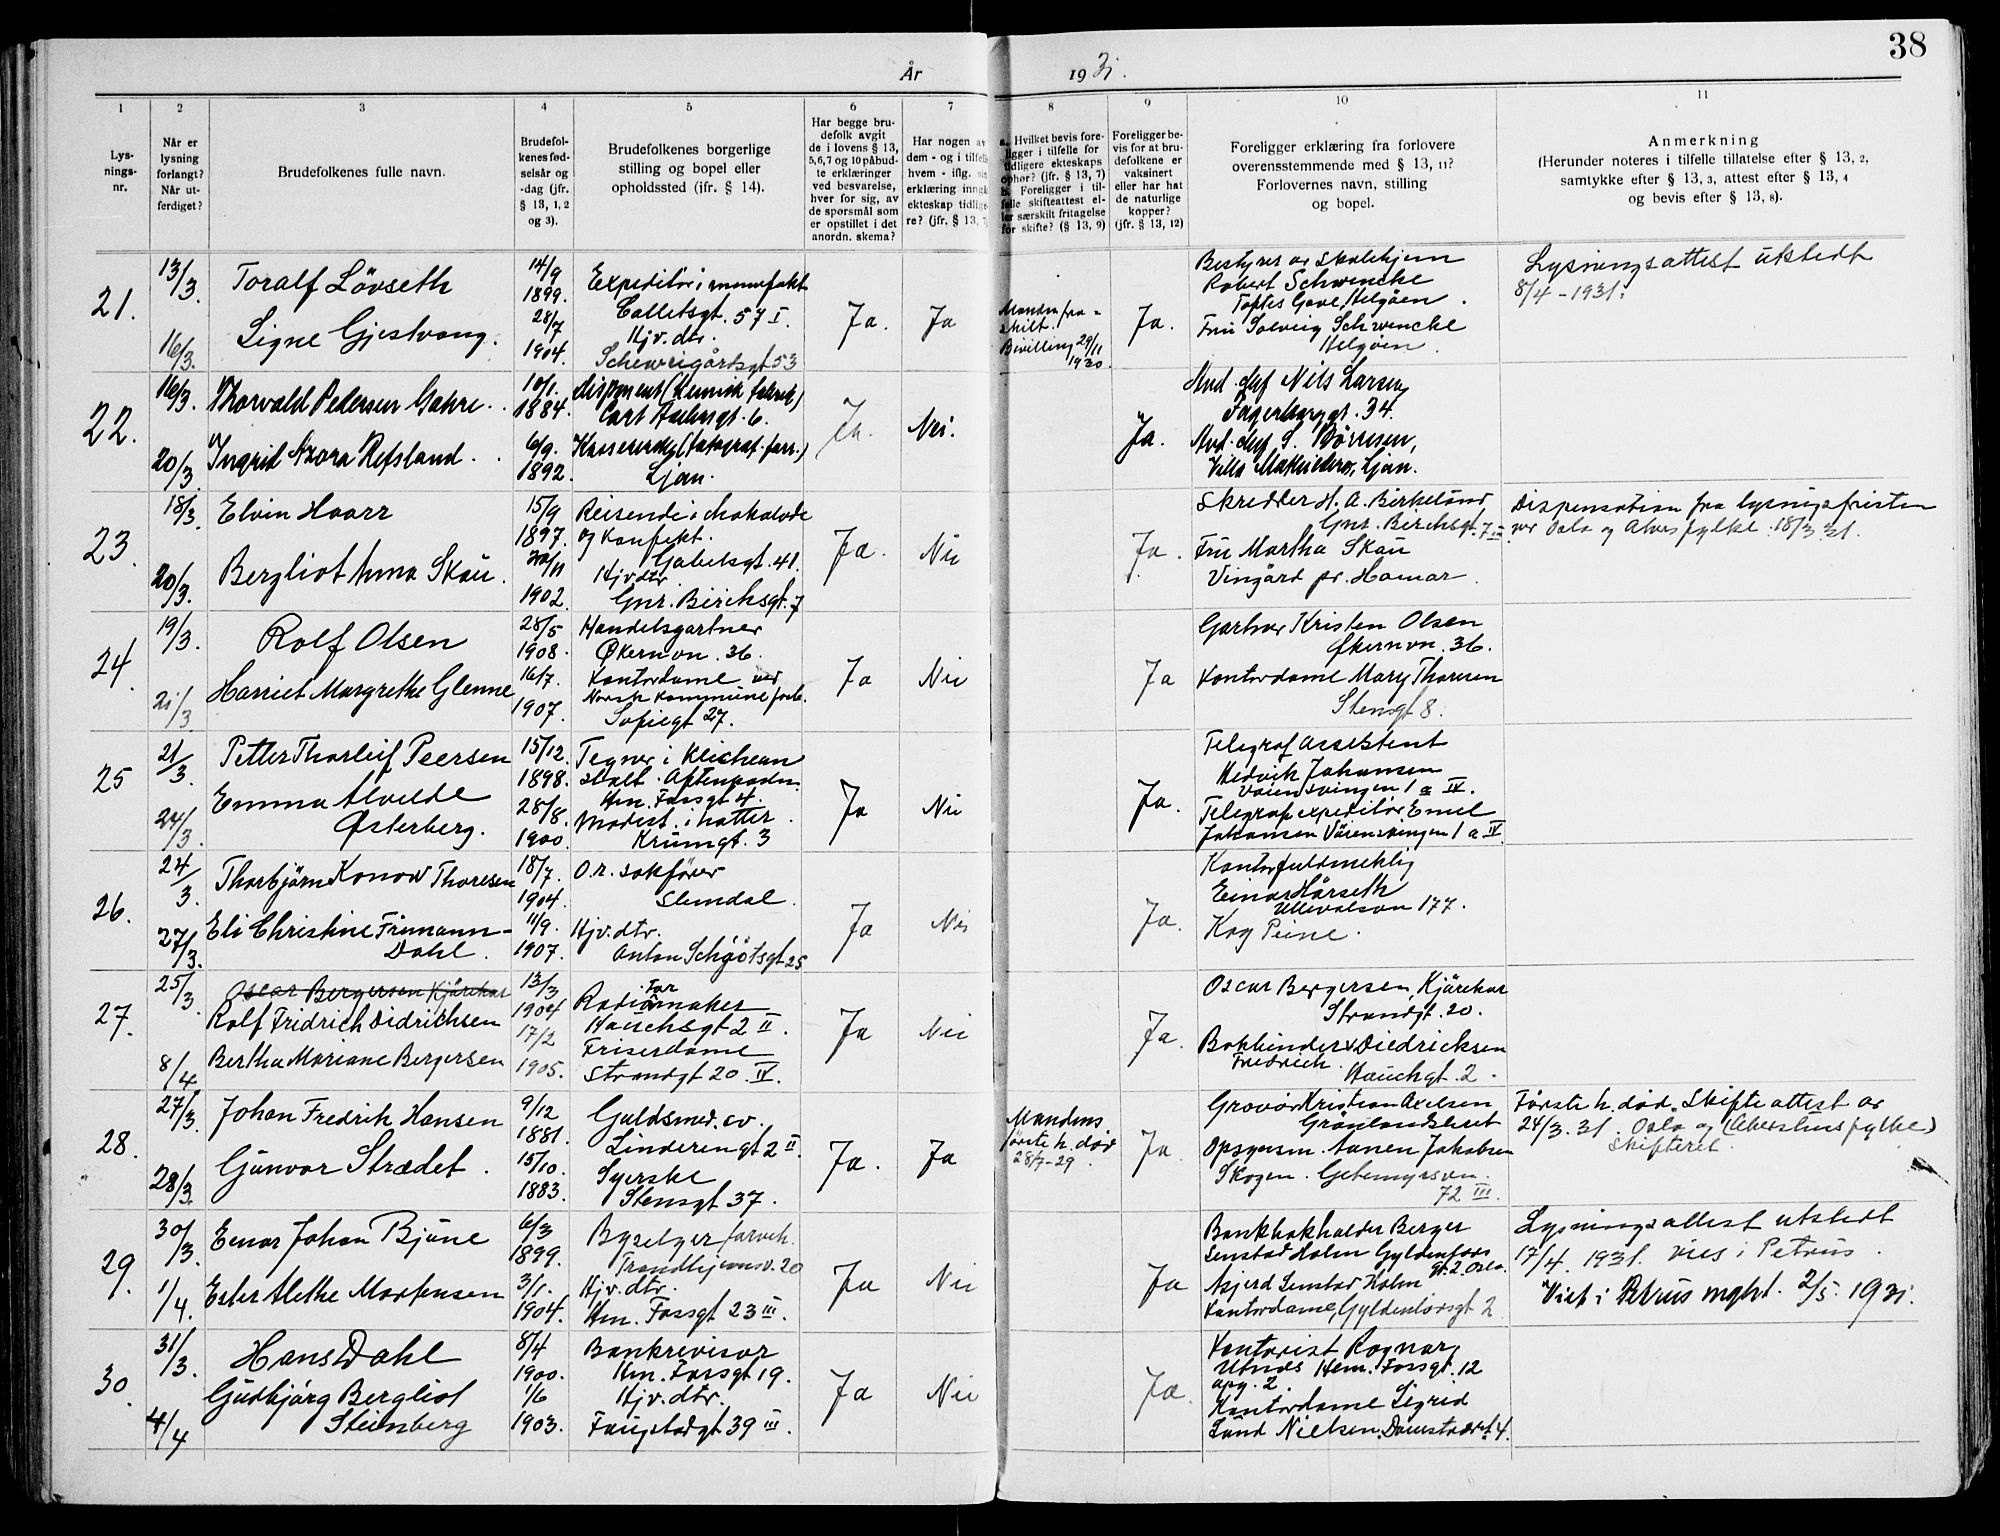 38
År 1931.
1 2 3 4 5 6 7 8 9 10 11
Lys-
nings-
nr.
Når er
lysning
forlangt?
Når ut-
ferdiget?
Brudefolkenes fulle navn.
Brudefol-
kenes fød-
selsår og
-dag (jfr.
§ 13, 1, 2
og 3).
Brudefolkenes borgerlige
stilling og bopel eller
opholdssted (jfr. § 14).
Har begge bru-
defolk avgit
de i lovens § 13,
5,6,7 og 10 påbud-
te erklæringer
ved besvarelse,
hver for sig, av
de spørsmål som
er opstillet i det
anordn. skema?
Har nogen av
dem - og i tilfelle
hvem - iflg. sin
erklæring inngåt
ekteskap tidlige-
re? (jfr. § 13,
a. Hvilket bevis fore-
ligger i tilfelle for
tidligere ekteskaps
ophør? (jfr. § 13, 7)
b. Foreligger i til-
felle skifteattest el-
ler særskilt fritagelse
for skifte? (§ 13, 9)
Foreligger be-
vis for at bru-
defolkene er
vaksinert
eller har hat
de naturlige
kopper?
(jfr. § 13, 12)
Foreligger erklæring fra forlovere
overensstemmende med § 13, 11?
Forlovernes navn, stilling
og bopel.
Anmerkning
(Herunder noteres i tilfelle tillatelse efter § 13, 2,
samtykke efter § 13, 3, attest efter § 13, 4
og bevis efter § 13, 8).
21.
13/3
16/3.
Toralf Lövseth
Signe Gjestvang.
14/9
1899.
28/7
1904.
Expeditör i manufakt
Calletsgt. 57 I.
Hjv. dtr.
Schweigårdsgt 53
Ja.
Ja
Manden fra-
skilt.
Bevilling 29/11
1930.
Ja.
Bestyrer av skolehjem
Robert Schwencke
Toftes Gave, Helgöen.
Fru Solveig Schwencke
Helgöen.
Lysningsattest utstedt
8/4 - 1931.
22.
16/3.
20/3.
Thorvald Pedersen
Ingrid Refsland.
10/1.
1884.
6/9.
1892.
Disponent (kemisk fabrik)
6.
Kassererske (fotograf. forr.)
Ljan.
Ja.
Nei.
Ja.
Nils Larsen
Fagerborggt. 34.
Villa Ljan.
23.
18/3.
20/3.
Elvin Haarr
Bergliot Anna Skau.
15/9
1897.
/11
1902.
Reisende i chokolade
og konfekt.
Gabelsgt. 41.
Hjv dtr
Gnr. Birchsgt. 7
Ja.
Nei
Ja.
Skredder H. A. Birkelund
Gnr. Birchsgt. 7
Fru Martha Skau
Vingård pr. Hamar.
Dispensation fra lysningsfristen
ver Oslo og Akers fylke. 18/3.31.
24.
19/3.
21/3
Rolf Olsen
Harriet Margrethe Glenne
28/5
1908.
16/7.
1907.
Handelsgartner
Økernvn. 36.
Kontordame ved
Norsk Kommuneforb.
Sofiegt 27.
Ja
Nei
Ja
Gartner Kristen Olsen
Økernvn. 36.
Kontordame Mary Thoresen
Stensgt 8.
25
21/3.
24/3.
Petter Thorleif Peersen
Emma Alvilde
Østerberg.
15/12.
1898.
28/8.
1900.
Tegner i Klichean
stalt. Aftenposten
Hm. Fossgt 4.
Modist. i hatter.
Krumgt. 3
Ja
Nei
Ja.
Telegraf assistent
Hedvik Johansen
Våiensvingen 1 a IV.
Telegrafexpeditör Emil
Johansen Våiensvingen 1 a IV
26.
24/3.
27/3.
Thorbjörn Konow Thoresen
Eli Christine Frimann-
Dahl.
18/7.
1904.
11/9.
1907.
O.r. sakförer
Slemdal.
Hjv. dtr.
Anton Schjötsgt 25
Ja
Nei
Ja.
Kontorfuldmektig
Einar Hårseth
Ullevalsvn 177.
Kag Peine.
27.
25/3.
8/4.
Oscar Bergersen Kjörekar
Rolf Fridrich Didrichsen
Bertha Mariane Bergersen
13/3
1904
17/2
1905.
Radiomaker
Hauchsgt 2 II.
Friserdame
Strandgt 20. IV.
Ja
Nei
Ja.
Oscar Bergersen, Kjörekar
Strandgt. 20.
Bokbinder Diedricksen
Fredrich.
Hauchgt. 2.
28.
27/3.
28/3.
Johan Fredrik Hansen
Gunvor Strædet.
9/12
1881.
15/10.
1883.
Guldsmed. sv.
Linderengt 2 II.
Syerske
Stensgt 37.
Ja.
Ja
Mandens
förste h. död
28/7-29.
Ja.
Gravör Kristian Axelsen
Grönlandsleret
Opsynsm. Jakobsen
Skogen. Geitemyrsvn.
72 III.
Förste h. död. Skifteattest av
24/3. 31. Oslo og (Akershus fylke)
Skifteret.
29.
30/3.
1/4.
Einar Johan Bjune
Ester Alethe Mortensen
6/3
1899.
3/1.
1904.
Byselger farveh.
Trondhjemsv. 20
Hjv. dtr.
Hm. Fossgt 23 III.
Ja
Nei
Ja
Bankbokholder Berger
Senstad Holm Gyldenlövs
gt. 2. Oslo.
Asjerd Senstad Holm
Kontordame, Gyldenlövsgt 2
Lysningsattest utstedt
17/4. 1931. vies i Petrus.
Viet i Petrus mght. 2/5. 1931.
30.
31/3.
4/4
Hans Dahl
Gudbjörg Bergliot
Steinberg
8/4
1900.
1/6
1903.
Bankrevisor
Hm. Fossgt 19.
Hjv. dtr.
Fougstadgt 39 III.
Ja
Nei
Ja.
Kontorist Ragnar
Utnes Hem. Fossgt. 12
opg. 2.
Kontordame Sigrid
Lund Nielsen. Damstrædet 4.